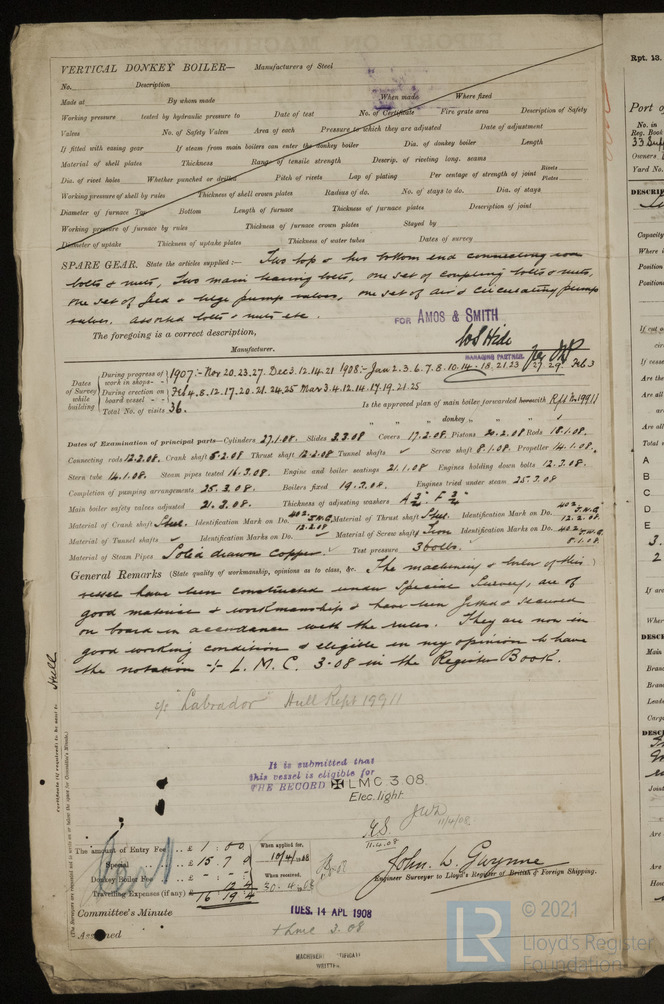 VERTICAL DONKEY BOILER— Manufacturers of Steel
No. Description
Made at By whom made When made Where fixed
Working pressure tested by hydraulic pressure to Date of test No. of Certificate Fire grate area Description of Safety
Valves No. of Safety Valves Area of each Pressure to which they are adjusted Date of adjustment
If fitted with easing gear If steam from main boilers can enter the donkey boiler Dia. of donkey boiler Length
Material of shell plates Thickness Range of tensile strength Descrip. of riveting long. seams
Dia. of rivet holes Whether punched or drilled Pitch of rivets Lap of plating Per centage of strength of joint Rivets Plates
Working pressure of shell by rules Thickness of shell crown plates Radius of do. No. of stays to do. Dia. of stays
Diameter of furnace Top Bottom Length of furnace Thickness of furnace plates Description of joint
Working pressure of furnace by rules Thickness of furnace crown plates Stayed by
Diameter of uptake Thickness of uptake plates Thickness of water tubes Dates of survey
SPARE GEAR. State the articles supplied:— Two top & two bottom end connecting rod
bolts & nuts, Two main bearing bolts, one set of coupling bolts & nuts,
one set of feed & bilge pump valves, one set of air & circulating pump
valves. Assorted bolts & nuts etc.
FOR AMOS & SMITH
The foregoing is a correct description,
Manufacturer. MANAGING PARTNER
Dates of Survey while building
During progress of work in shops— 1907:- Nov 20.23.27. Dec 3.12.14.21 1908:- Jan 2.3.6.7.8.10.14.18.21.23 27.29. Feb 3
During erection on board vessel— Feb 4.8.12.17.20.21.24.25 Mar 3.4.12.14.17.19.21.25
Total No. of visits 36. Is the approved plan of main boiler forwarded herewith Rpt No 19911
" " " donkey " "
Dates of Examination of principal parts—Cylinders 27.1.08. Slides 3.3.08 Covers 17.2.08 Pistons 20.2.08 Rods 18.1.08.
Connecting rods 12.2.08. Crank shaft 5.2.08 Thrust shaft 12.2.08 Tunnel shafts ✓ Screw shaft 8.1.08. Propeller 14.1.08.
Stern tube 14.1.08. Steam pipes tested 16.3.08. Engine and boiler seatings 21.1.08 Engines holding down bolts 12.3.08.
Completion of pumping arrangements 25.3.08. Boilers fixed 19.3.08. Engines tried under steam 25.3.08
Main boiler safety valves adjusted 21.3.08. Thickness of adjusting washers A 3/4 F 3/4
Material of Crank shaft Steel. Identification Mark on Do. 402 J.W.G. 12.2.08. Material of Thrust shaft Steel. Identification Mark on Do. 402 J.W.G. 12.2.08.
Material of Tunnel shafts ✓ Identification Marks on Do. ✓ Material of Screw shafts Iron Identification Marks on Do. 402 J.W.G. 8.1.08.
Material of Steam Pipes Solid drawn Copper. ✓ Test pressure 300lbs. ✓
General Remarks (State quality of workmanship, opinions as to class, &c. The machinery & boiler of this
vessel have been constructed under Special Survey, are of
good material & workmanship & have been fitted & secured
on board in accordance with the rules. They are now in
good working condition & eligible in my opinion to have
the notation + L.M.C. 3-08 in the Register Book.
"Labrador" Hull Rept 19911
It is submitted that
this vessel is eligible for
THE RECORD ✠ LMC 3.08
Elec. light.
11/4/08
11.4.08
The amount of Entry Fee .. £ 1 : 0 : 0 When applied for,
Special .. £ 15 . 7 . 0 10/4/1908
Donkey Boiler Fee .. £ - : - : - When received,
Travelling Expenses (if any) £ 12.4 30.4.08
16.19.4
John W. Gwynne
Engineer Surveyor to Lloyd's Register of British & Foreign Shipping.
Committee's Minute TUES. 14 APL 1908
Assigned + LMC 3.08
MACHINERY CERTIFICATE
WRITTEN
Hull
Rpt. 13.
Port of
No. in
Reg. Book
Owners
Yard No.
Capacity
Where
Position
Position
If vessel
Are the
Are all
Are all
Total
A
B
C
D
E
3.
2
Where
Main
Bran
Bran
Leads
Cargo
Are
Are
How
LR
© 2021
Lloyd's Register
Foundation